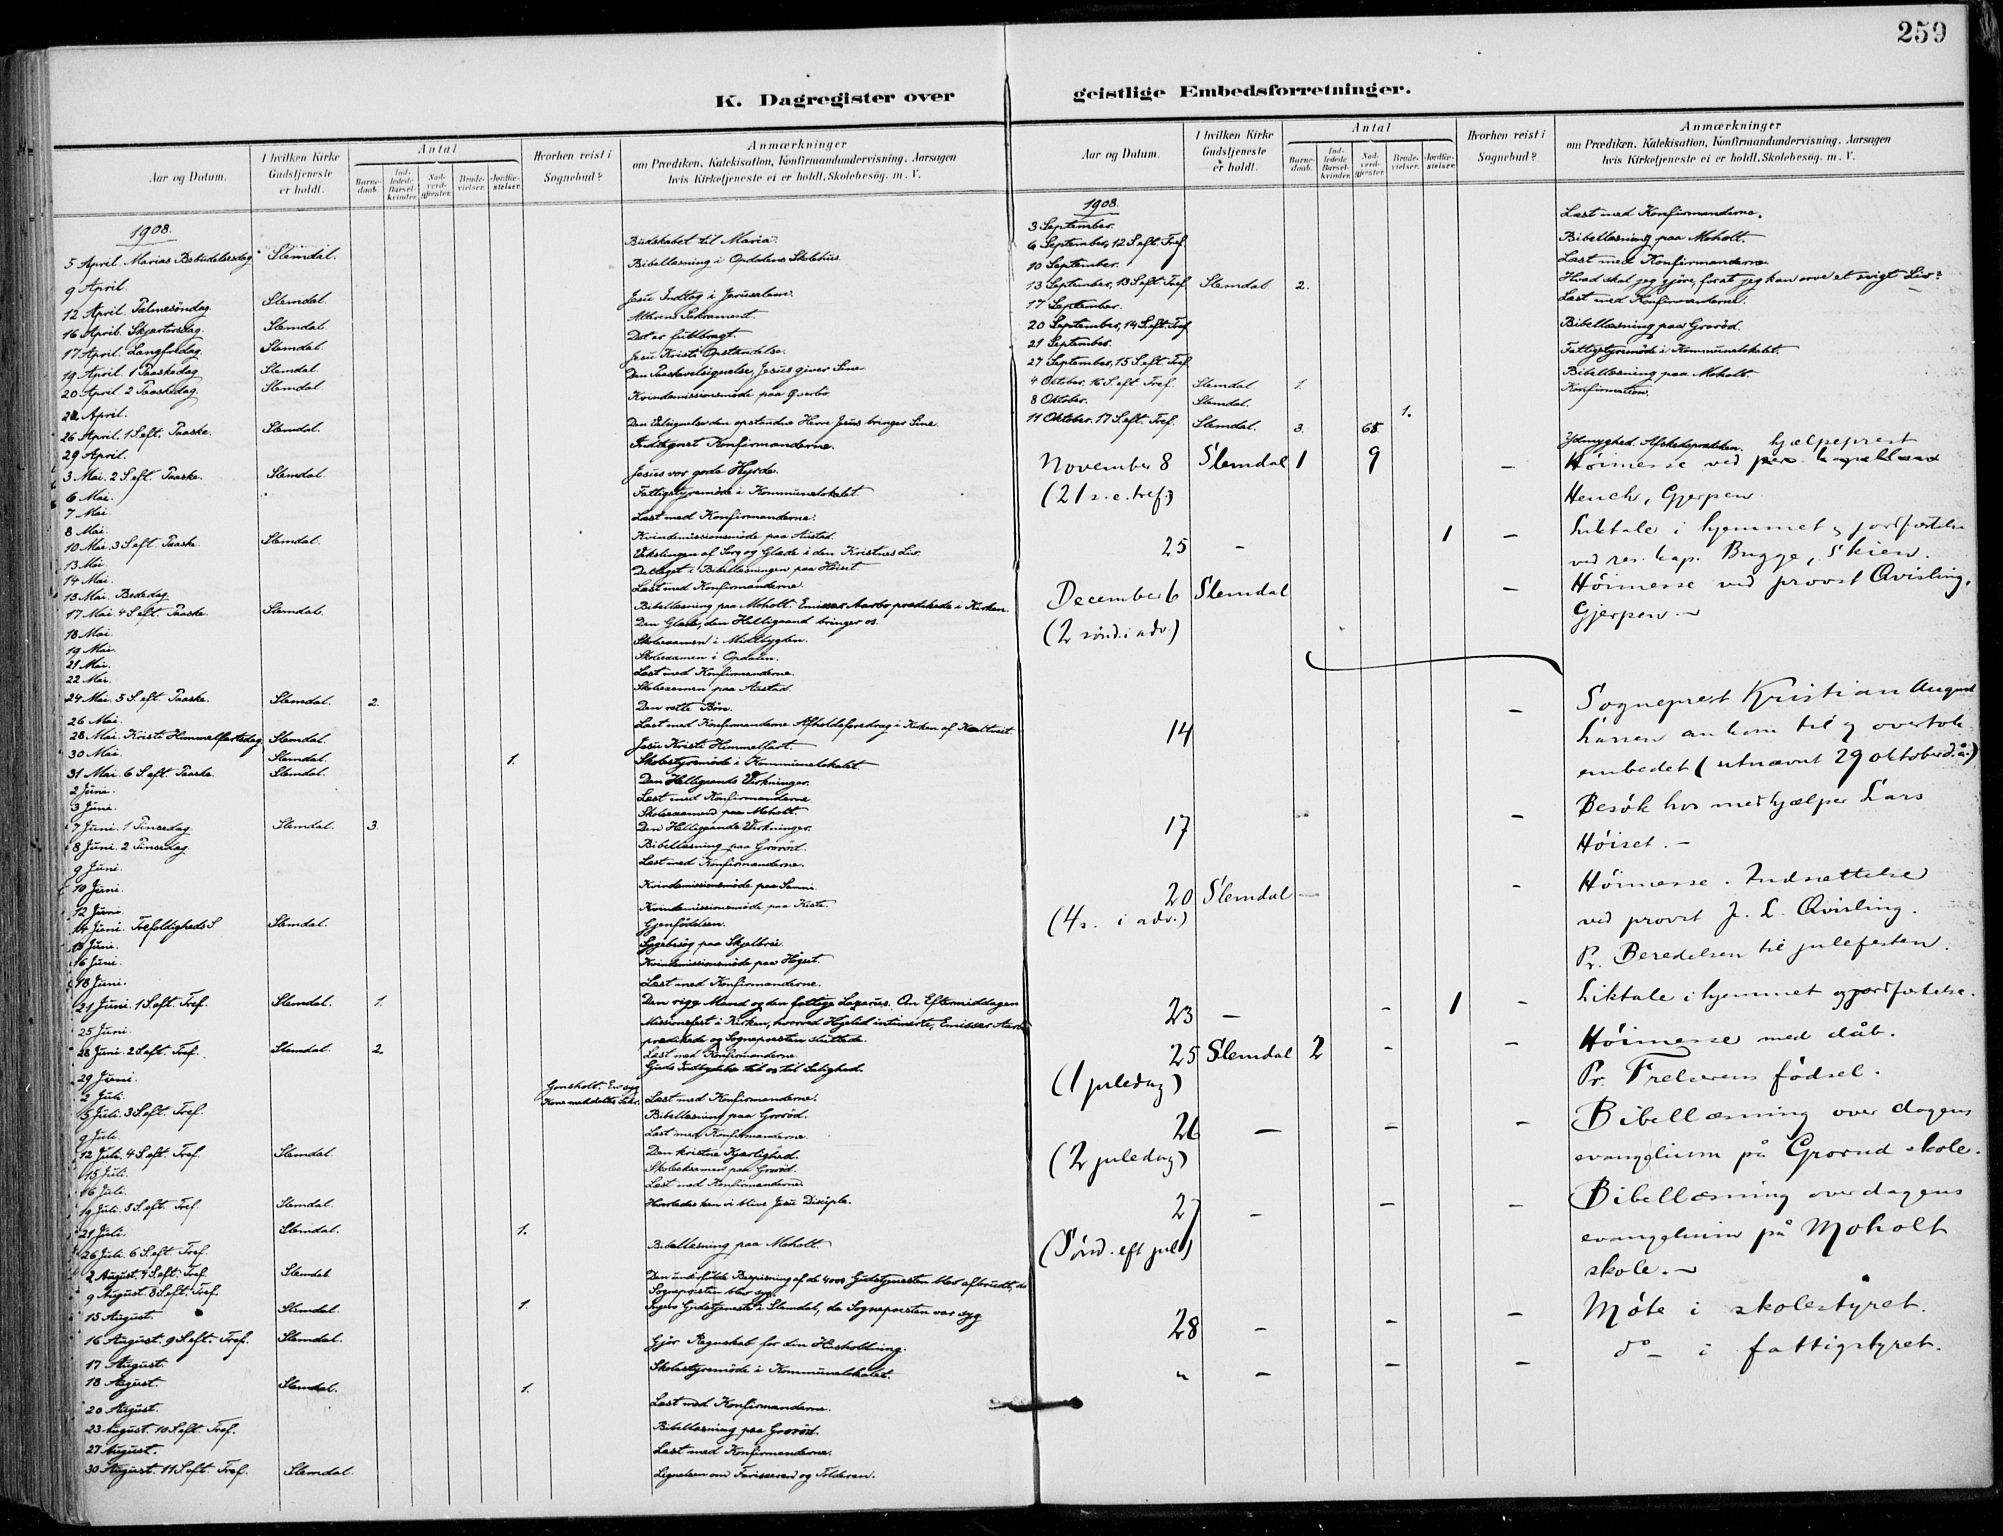 259
K. Dagregister over geistlige Embedsforretninger.
Aar og Datum.
I hvilken Kirke Gudstjeneste er holdt.
Antal
Barne-daab.
Ind-ledede Barsel-kvinder.
Nad-verd-gjester.
Brude-vielser.
Jordfæ-stelser.
Hvorhen reist i Sognebud?
Anmærkninger
om Prædiken, Katekisation, Konfirmandundervisning, Aarsagen
hvis Kirketjeneste ei er holdt, Skolebesøg. m. V.
1908.
5 April. Marias Bebudelsesdag Slemdal. Budskabet til Maria.
9 April. Bibellæsning i Opdalens Skolehus.
12 April. Palmesöndag. Slemdal. Jesu Indtog i Jerusalem.
16 April. Skjærtorsdag. Slemdal. Altrens Sakrament.
17 April. Langfredag. Slemdal. Det er fuldbragt.
19 April. 1 Paaskedag Slemdal. Jesu Kristi Opstandelse.
20 April 2 Paaskedag. Slemdal. Den Paaskevelsignelse, Jesus giver Sine
April. Kvindemissionsmøde paa
26 April. 1 S. eft. Paaske. Slemdal. Den Velsignelse den opstandne Herre Jesus bringer Sine.
29 April. Indtegnet Konfirmanderne.
3 Mai. 2 S. eft. Paaske. Slemdal. Jesus vor gode Hyrde.
6 Mai. Fattigstyremöde i Kommunelokalet.
7 Mai. Læst med Konfirmanderne.
8 Mai. Kvindemissionsmöde paa
10 Mai. 3 S. eft. Paaske. Slemdal. Vekslingen af Sorg og Glæde i den Kristnes Liv.
13 Mai Deltaget i Bibellæsningen paa Höiset.
14 Mai. Læst med Konfirmanderne.
15 Mai. Bededag Bibellæsning paa Moholt. Emissær Aarbo prædikede i Kirken
17 Mai. 4 S. eft. Paaske. Slemdal. Den Glæde, den Helligaand bringer os.
18 Mai. Skoleexamen i Midtbygden.
19 Mai. Skoleexamen i Opdalen.
21 Mai. Læst med Konfirmanderne.
22 Mai. Skoleexamen paa
24 Mai. 5 S. eft. Paaske Slemdal. 2. Den rette Bön.
26 Mai. Læst med Konfirmanderne Afholdsforedrag i Kirken af
28 Mai. Kristi Himmelfartsdag. Slemdal. Jesu Kristi Himmelfart.
30 Mai. Slemdal. 1. Skolestyremöde i Kommunelokalet.
31 Mai. 6 S. eft. Paaske. Slemdal. Den Helligaands Virkninger.
2 Juni. Læst med Konfirmanderne
3 Juni. Skoleexamen paa Moholt.
7 Juni. 1 Pinsedag. Slemdal. 3. Den Helligaands Virkninger.
8 Juni. 2 Pinsedag. Bibellæsning paa Groröd.
9 Juni. Læst med Konfirmanderne.
10 Juni. Kvindemissionsmöde paa
12 Juni. Kvindemissionsmöde paa
14 Juni. Trefoldigheds S. Slemdal. Gjenfödelsen.
15 Juni. Sygebesög paa
16 Juni. Kvindemissionsmöde paa
18 Juni. Læst med Konfirmanderne.
21 Juni. 1 S. eft. Tref. Slemdal. 1. Den rige Mand og den fattige Lazarus. Om Eftermiddagen
Missionsfest i Kirken, hvorved Hegtid intimerte, Emissær
prædikede og Sognepresten sluttede.
25 Juni. Læst med Konfirmanderne
28 Juni. 2 S. eft. Tref. Slemdal. 2. Guds Indbydelse til os til Salighed.
29 Juni.
2 Juli. Gonsholt. En syg Læst med Konfirmanderne.
5 Juli. 3 S. eft. Tref. Bibellæsning paa Groröd.
9 Juli. Læst med Konfirmanderne
12 Juli. 4 S. eft. Tref. Slemdal. Den kristne Kjærlighed.
15 Juli. Skoleeksamen paa Groröd.
16 Juli. Læst med Konfirmanderne
19 Juli. 5 S. eft. Tref. Slemdal. Hvorledes kan vi blive Jesu Disciple.
21 Juli. Slemdal. 1.
26 Juli. 6 S. eft. Tref. Bibellæsning paa Moholt.
2 August. 7 S. eft. Tref. Slemdal Den underfulde Bespisning af de 4000 Gudstjenesten blev afbrudt, da
Sognepresten blev syg.
9 August. 8 S. eft. Tref. Ingen Gudstjeneste i Slemdal, da Sognepresten var syg
15 August. Slemdal. 1.
16 August. 9 S. eft. Tref. Slemdal. Gjör Regnskab for din Husholdning.
17 August. Skolestyremöde i Kommunelokalet.
18 August. Slemdal. 1.
20 August. Læst med Konfirmanderne.
23 August. 10 S. eft. Tref. Bibellæsning paa Groröd.
27 August. Læst med Konfirmanderne.
30 August. 11 S. eft. Tref. Slemdal. Lignelsen om Farisæeren og Tolderen.
Aar og Datum.
I hvilken Kirke Gudstjeneste er holdt.
Antal
Barne-daab.
Ind-ledede Barsel-kvinder.
Nad-verd-gjester.
Brude-vielser.
Jordfæ-stelser.
Hvorhen reist i Sognebud?
Anmærkninger
om Prædiken, Katekisation, Konfirmandundervisning, Aarsagen
hvis Kirketjeneste ei er holdt, Skolebesøg. m. V.
1908.
3 September. Læst med Konfirmanderne.
6 September, 12 S. eft. Tref. Bibellæsning paa Moholt.
10 September. Læst med Konfirmanderne
13 September, 13 S. eft. Tref Slemdal 2. Hvad skal jeg gjöre, forat jeg kan arve et evigt Liv?
17 September. Læst med Konfirmanderne.
20 September, 14 S. eft. Tref Bibellæsning paa Groröd.
21 September. Fattigstyremöde i Kommunelokalet.
27 September, 15 S. eft. Tref. Bibellæsning paa Moholt.
4 Oktober. 16 S. eft. Tref. Slemdal. 1. Konfirmation.
8 Oktober. Slemdal. 1.
11 Oktober. 17 S. eft. Tref. Slemdal. 3. 68 Ydmyghed. Afskedsprædiken.
November 8 Slemdal 1 9 – Höimesse ved hjælpeprest
(21 s. e. tref.) Hench, Gjerpen.
25 – 1 – Liktale i hjemmet & jordfæstelse
ved res. kap. Bugge, Skien.
December 6 Slemdal – Höimesse ved provst Qvisling,
(2 sönd. i adv.) Gjerpen. –
14 – Sogneprest Kristian August
Larsen ankom til & overtok
embedet (utnævnt 29 oktober d. å.)
17 – – Besök hos medhjælper Lars
Höiset. –
20 Slemdal – – Höimesse. Indsættelse
(4 s. i adv.) ved provst J. L. Qvisling.
Pr. Beredelsen til julefesten.
23 – – 1 – Liktale i hjemmet og jordfæstelse.
25 Slemdal 2 – – Höimesse med dåb.
(1 juledag) Pr. Frelserens födsel.
26 – – – Bibellæsning over dagens
(2 juledag) evangelium på Grorud skole.
27 – – – Bibellæsning over dagens
(Sönd. eft jul) evangelium på Moholt
skole. –
28 – – – Möte i skolestyret.
" – – – do – i fattigstyret.